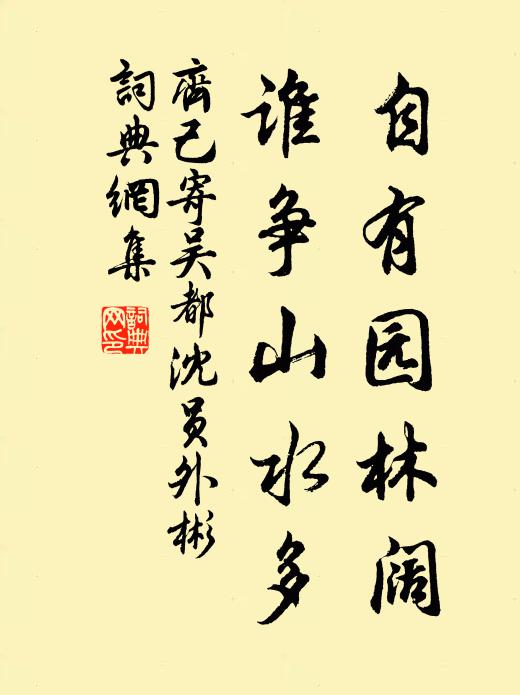 自有园林阔
谁争山水多
齊己寄吴都沈员外彬
詞典網集
詞典
网印